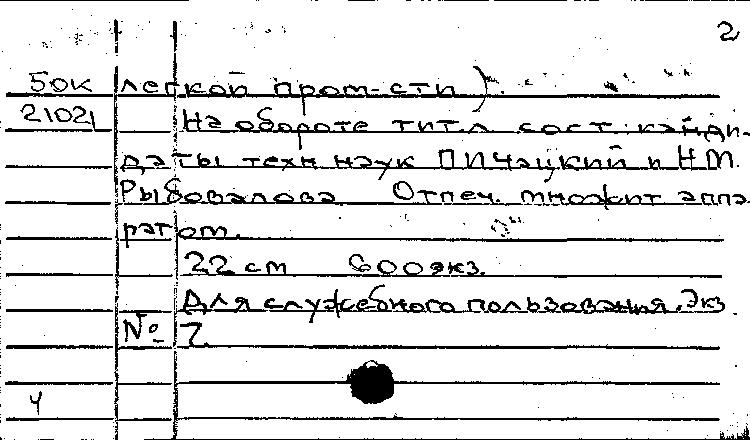 2
50к легкой пром-сти).
21021 На обороте тит. л. сост.: канди-
даты техн наук П.И.Чацкий и Н.М.
Рыбовалова. Отпеч. множит аппа-
ратом.
22 см 600 экз.
Для служебного пользования. Экз
№ 7.
4